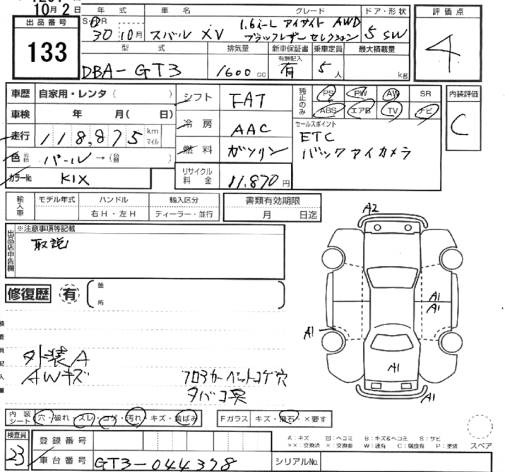 10月2日
出品番号
133
年式 車名 グレード ドア・形状 評価点
30 10月 スバル XV 1.6i-L アイサイト AWD ブラックレザーセレクション 5 SW 4
型式 排気量 新車保証書 乗車定員 最大積載量
有無記入
DBA-GT3 1600cc 有 5人 kg
車歴 自家用・レンタ( ) シフト FAT PS PW AW SR 内装評価
車検 年 月( 日) 冷房 AAC ABS エアB TV ナビ C
走行 118,875 km マイル 燃料 ガソリン セールスポイント
ETC
バックアイカメラ
色 パール →
カラーNo. KIX リサイクル料金 11,870円
輸入車 モデル年式 ハンドル 輸入区分 書類有効期限
右H・左H ディーラー・並行 月 日迄
※注意事項等記載
取説
修復歴 有
箇所
A2
A1
A1
A1
A1
A1
外装A
AWキズ
フロアカーペットコゲ穴
タバコ臭
内装シート 穴・破れ スレ コゲ 汚れ キズ・飛ばみ Fガラス キズ・飛石・×要す
スペア
検査員 23
登録番号
車台番号 GT3-044378 シリアルNo.